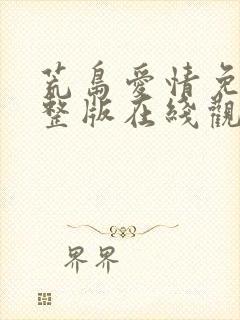 荒島愛情免
整版在綫觀
界界